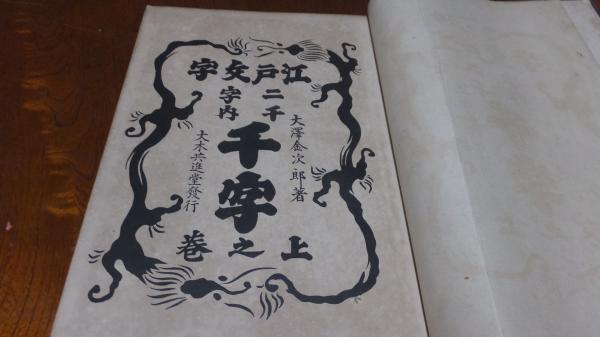 江戸文字
二千
字内
大澤金次郎著
千字
大木共進堂發行
上之巻